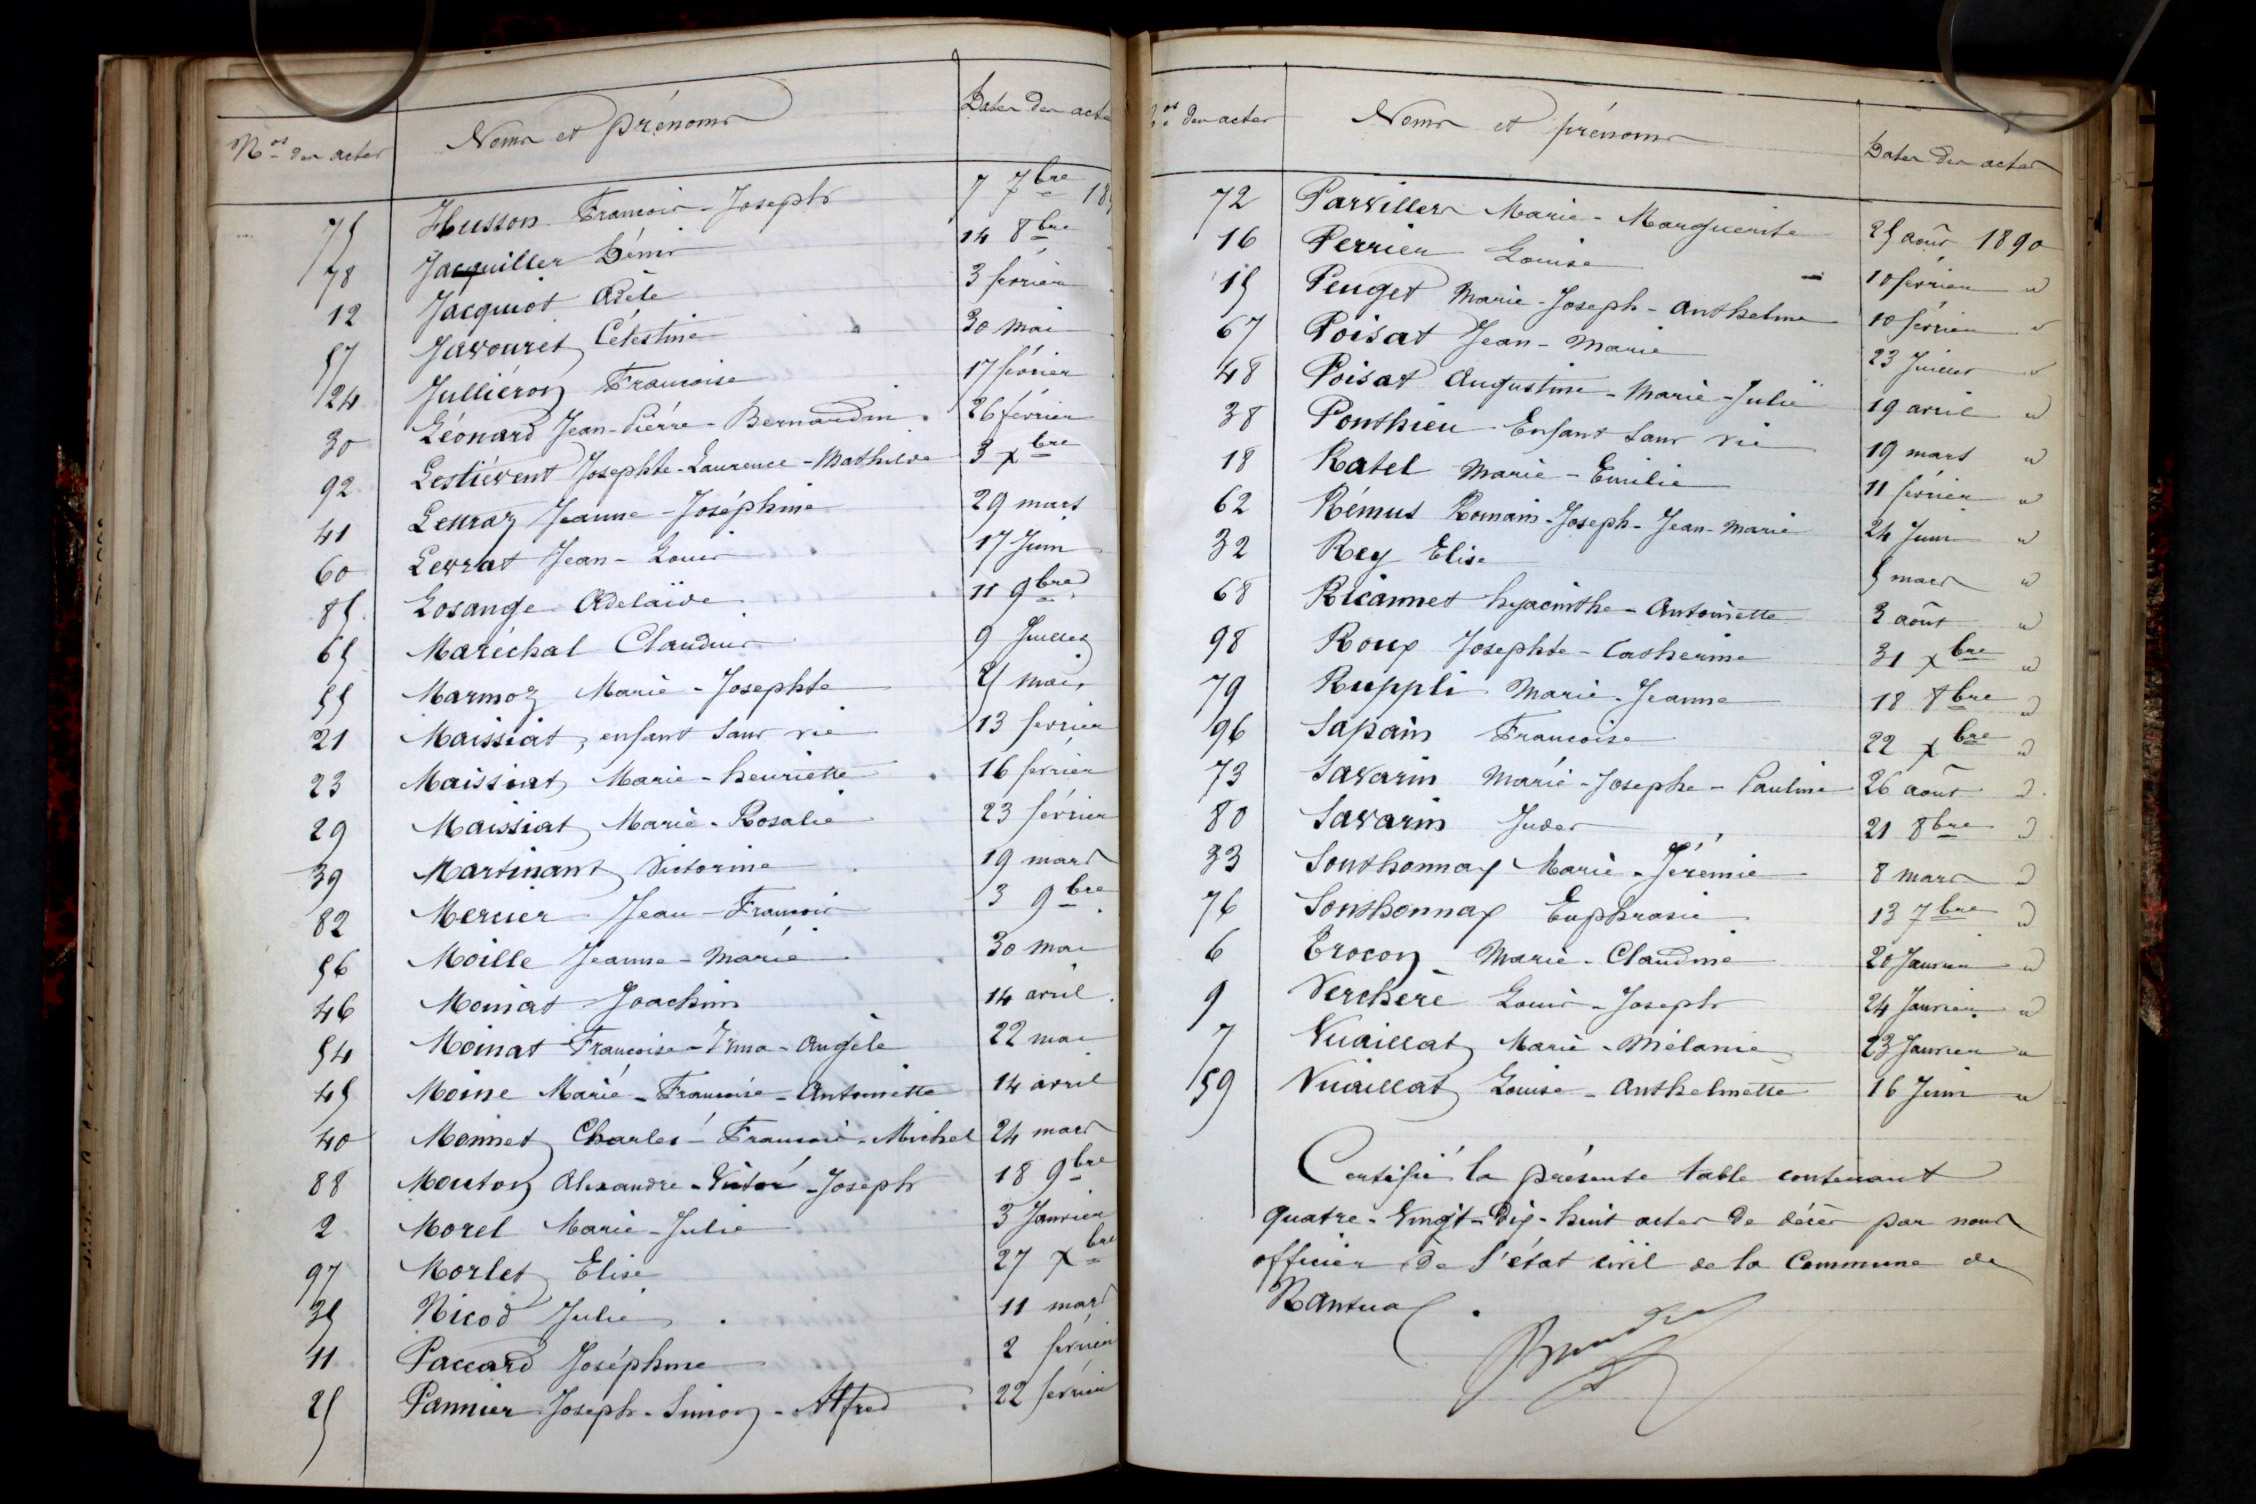 Nos des actes Noms et prénoms Dates des actes
75 Husson François-Joseph 7 7bre 18
78 Jacquiller Dénis 14 8bre
12 Jacquiot Adèle 3 février
57 Javouret Célestine 30 mai
24 Julliéron Françoise 17 février
30 Léonard Jean-Pierre-Bernardin 26 février
92 Lestiévent Josephte-Laurence-Mathilde 3 Xbre
41 Levraz Jeanne-Joséphine 29 mars
60 Levrat Jean-Louis 17 Juin
85 Losange Adelaïde 11 9bre
65 Maréchal Claudius 9 Juillet
55 Marmoz Marie-Josephte 25 mai
21 Maissiat, enfant sans vie 13 février
23 Maissiat Marie-henriette 16 février
29 Maissiat Marie-Rosalie 23 février
39 Martinant Victorine 19 mars
82 Mercier Jean-François 3 9bre
56 Moille Jeanne-Marie 30 mai
46 Moniat Joachim 14 avril
54 Moinat Françoise-Irma-Angèle 22 mai
45 Moine Marie-Françoise-Antoinette 14 avril
40 Monnet Charles-François-Michel 24 mars
88 Mouton Alexandre-Victor-Joseph 18 9bre
2 Morel Marie-Julie 3 Janvier
97 Morlet Elise 27 Xbre
35 Nicod Julie 11 mars
11 Paccard Joséphine 2 février
25 Pannier Joseph-Simon-Alfred 22 février
Nos des actes Noms et prénoms Dates des actes
72 Parvillers Marie-Marguerite 25 août 1890
16 Perrier Louise 10 février "
15 Peuget Marie-Joseph-Anthelme 10 février "
67 Poisat Jean-Marie 23 Juillet "
48 Poisat Augustine-Marie-Julie 19 avril "
38 Ponthieu Enfant sans vie 19 mars "
18 Ratel Marie-Emilie 11 février "
62 Rémus Romain-Joseph-Jean-Marie 24 Juin "
32 Rey Elise 5 mars "
68 Ricannet hyacinthe-Antoinette 3 août "
98 Roux Josephte-Catherine 31 Xbre "
79 Ruppli Marie-Jeanne 18 8bre "
96 Sapain Françoise 22 Xbre "
73 Savarin Marie-Josephe-Pauline 26 août "
80 Savarin Judes 21 8bre "
33 Sonthonnax Marie-Jérémie 8 mars "
76 Sonthonnax Euphrasie 13 7bre "
6 Trocon Marie-Claudine 20 Janvier "
9 Verchère Louis-Joseph 24 Janvier "
7 Vuaillat Marie-Mélanie 23 Janvier "
59 Vuaillat Louise-Anthelmette 16 Juin "
Certifié la présente table contenant
quatre-vingt-dix-huit actes de décès par nous
officier de l'état civil de la Commune de
Nantua.